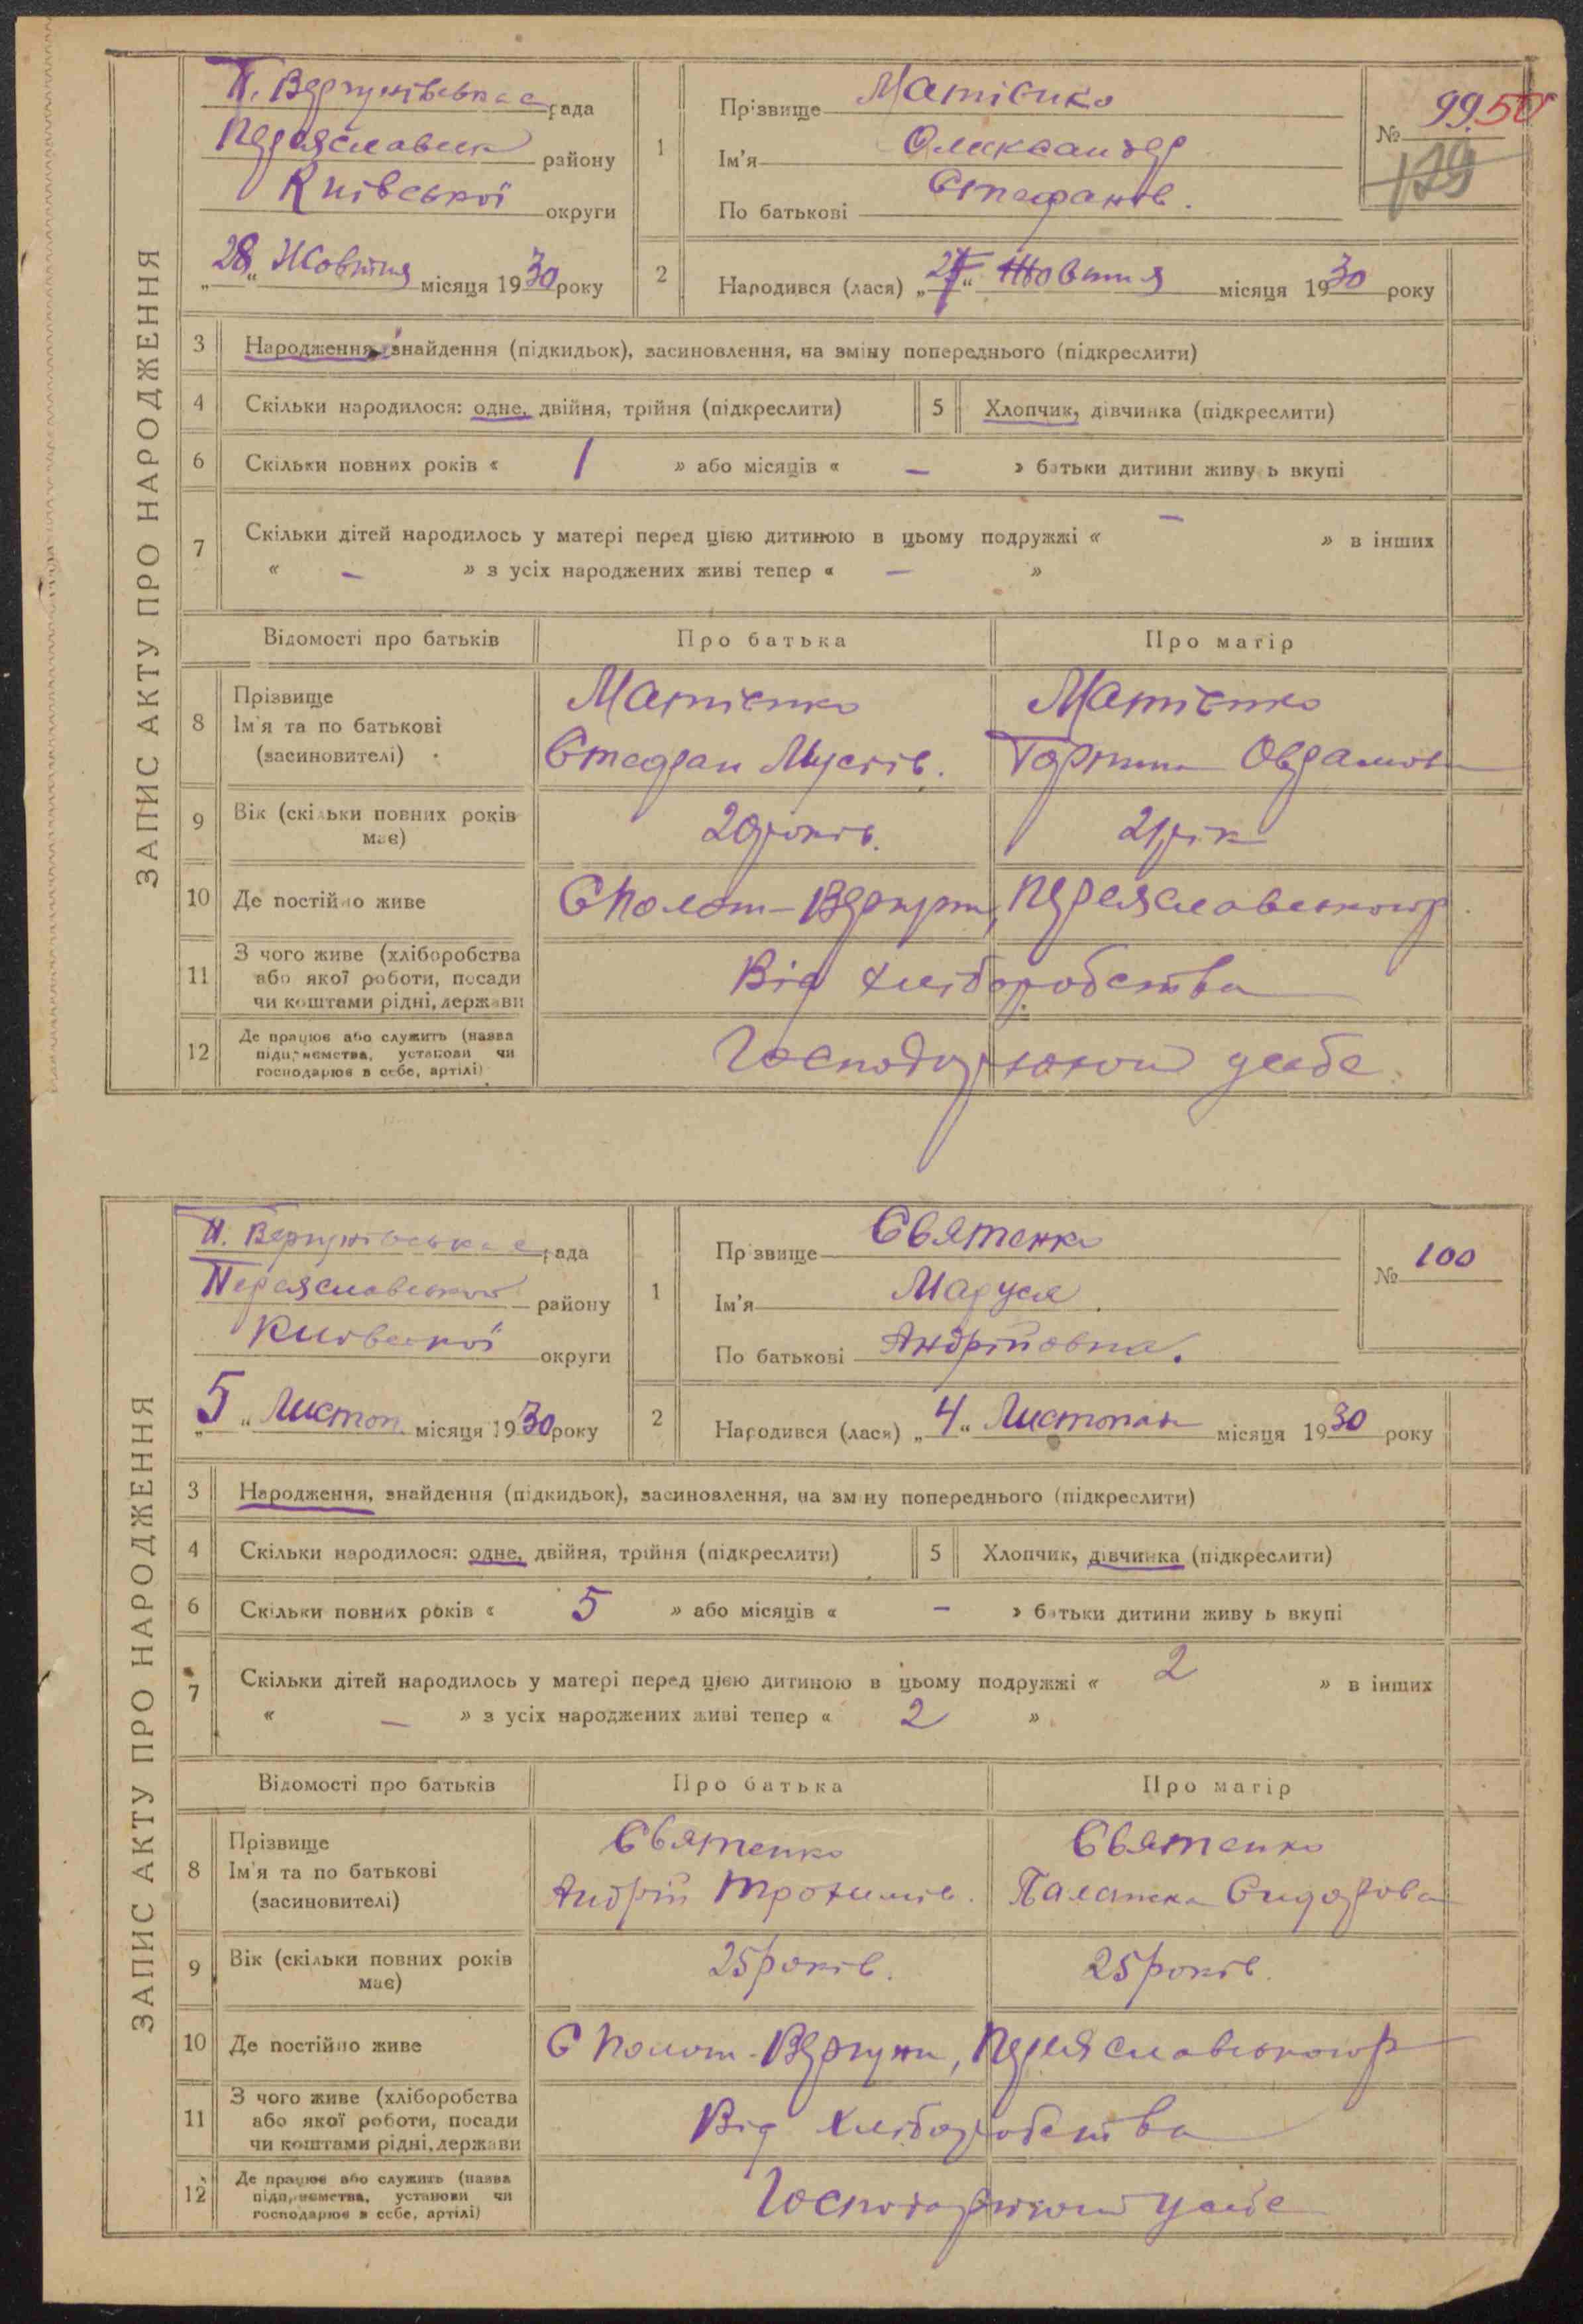 ЗАПИС АКТУ ПРО НАРОДЖЕННЯ
П. Вергунівська с рада
Переяславськ району
Київської округи
„28“ Жовтня місяця 1930 року
1
Прізвище Матієнко
Ім'я Олександер
По батькові Стефанов.
№ 99 50
179
2
Народився (лася) „27“ Жовтня місяця 1930 року
3 Народження, знайдення (підкидьок), засиновлення, на зміну попереднього (підкреслити)
4 Скільки народилося: одне, двійня, трійня (підкреслити)
5 Хлопчик, дівчинка (підкреслити)
6 Скільки повних років « 1 » або місяців « – » батьки дитини живуть вкупі
7 Скільки дітей народилось у матері перед цією дитиною в цьому подружжі « – » в інших
« – » з усіх народжених живі тепер « – »
Відомості про батьків Про батька Про матір
8 Прізвище Матієнко Матієнко
Ім'я та по батькові
(засиновителі) Стефан Мусіїв.
9 Вік (скільки повних років має) 20 років. 21 рік
10 Де постійно живе С Полот-Вергуни, Переяславського р.
11 З чого живе (хліборобства
або якої роботи, посади
чи коштами рідні, держави Від хліборобства
12 Де працює або служить (назва
підприємства, установи чи
господарює в себе, артілі) Господарюють у себе.
ЗАПИС АКТУ ПРО НАРОДЖЕННЯ
П. Вергунівська с рада
Переяславського району
Київської округи
„5“ Листоп. місяця 1930 року
1
Прізвище Святенко
Ім'я Маруся.
По батькові Андрійовна.
№ 100
2
Народився (лася) „4“ Листопад місяця 1930 року
3 Народження, знайдення (підкидьок), засиновлення, на зміну попереднього (підкреслити)
4 Скільки народилося: одне, двійня, трійня (підкреслити)
5 Хлопчик, дівчинка (підкреслити)
6 Скільки повних років « 5 » або місяців « – » батьки дитини живуть вкупі
7 Скільки дітей народилось у матері перед цією дитиною в цьому подружжі « 2 » в інших
« – » з усіх народжених живі тепер « 2 »
Відомості про батьків Про батька Про матір
8 Прізвище Святенко Святенко
Ім'я та по батькові
(засиновителі) Андрій Трохимів. Палажка Сидорова
9 Вік (скільки повних років має) 25 років. 25 років.
10 Де постійно живе С Полот-Вергуни, Переяславського р
11 З чого живе (хліборобства
або якої роботи, посади
чи коштами рідні, держави Від хліборобства
12 Де працює або служить (назва
підприємства, установи чи
господарює в себе, артілі) Господарюють у себе